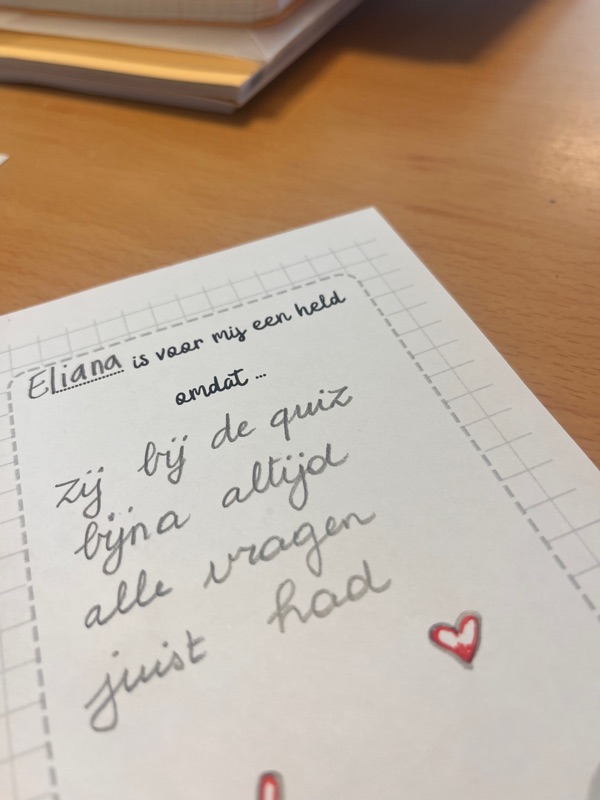 Eliana is voor mij een held
omdat ...
zij bij de quiz
bijna altijd
alle vragen
juist had